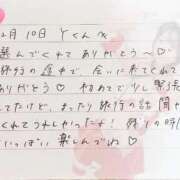 2月10日 Yくん
選んでくれて ありがとう〜♡
旅行の途中で、会いに来てくれて
ありがとう♡ 初めてで少し緊張
してたけど、まったり旅行の話 聞か
くれてうれしかったよ! 残りの時
いっぱい 楽しんでね♡